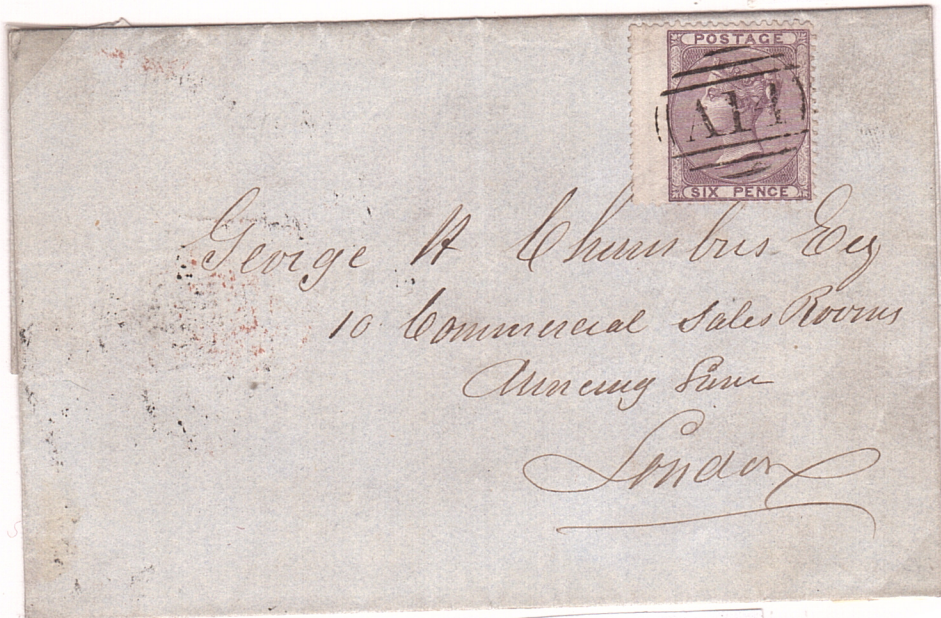 POSTAGE
A11
SIX PENCE
George H Chambers Esq
10 Commercial Sales Rooms
Mincing Lane
London